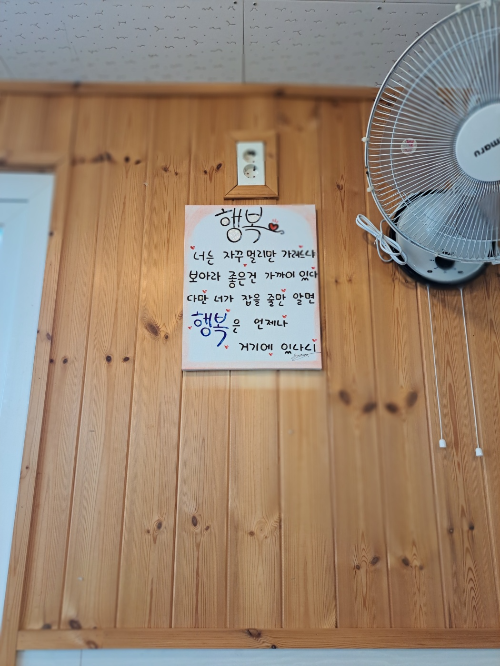 행복
너는 자꾸 멀리만 가려느냐
보아라 좋은건 가까이 있다
다만 네가 잡을 줄만 알면
행복은 언제나
거기에 있나니
maru